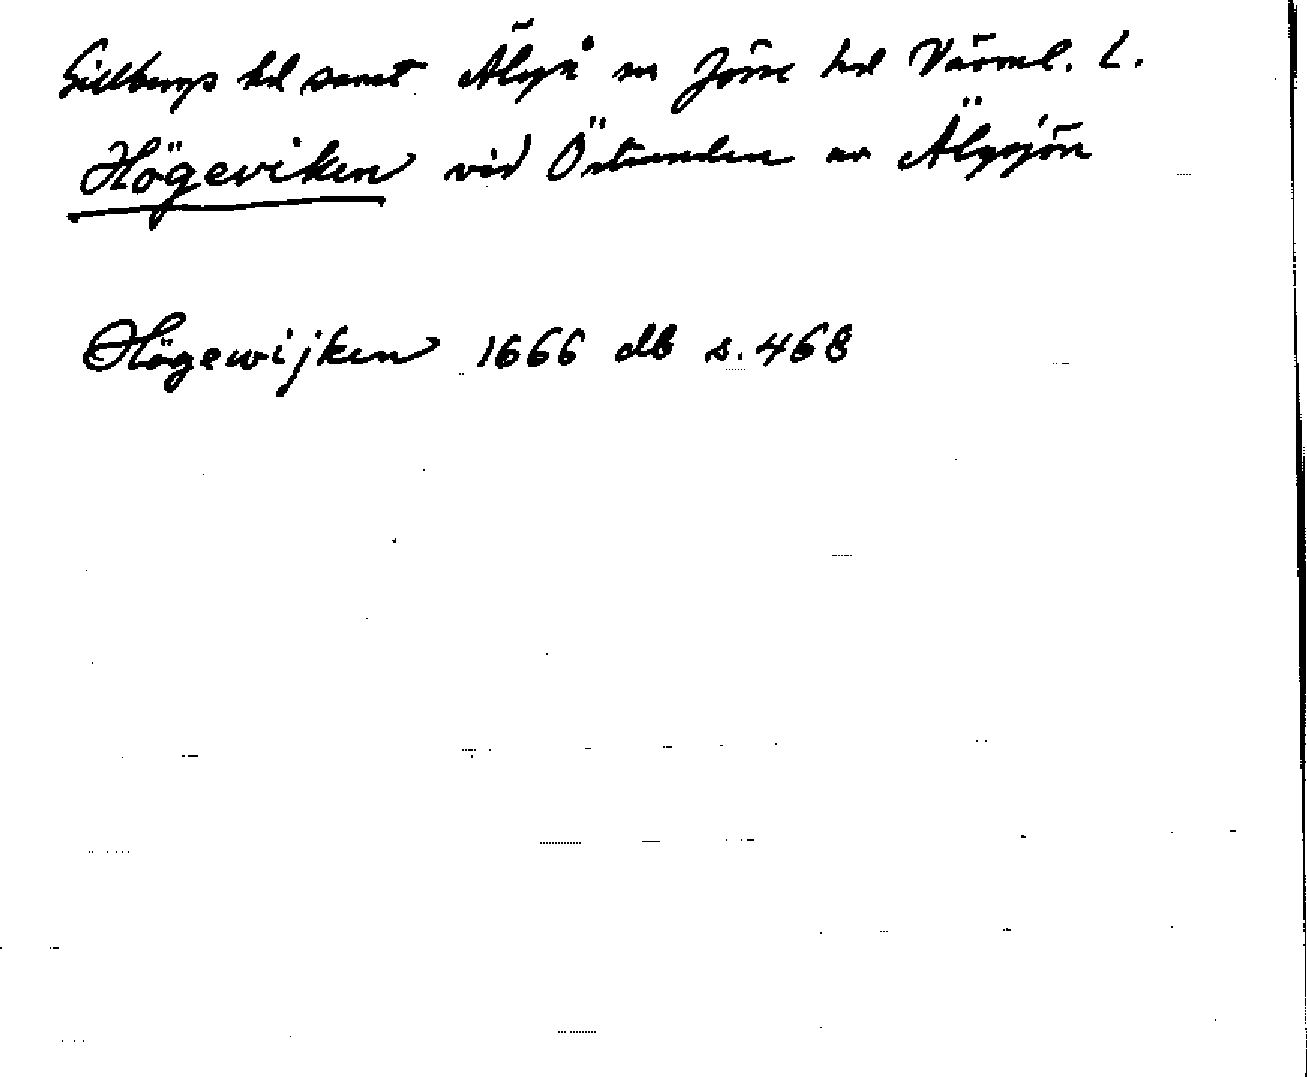 Gillbergs hd samt Älgå sn Jösse hd Värml. L.
Högeviken vid Östra änden av Älgsjön
Högewijken 1666 db s. 468